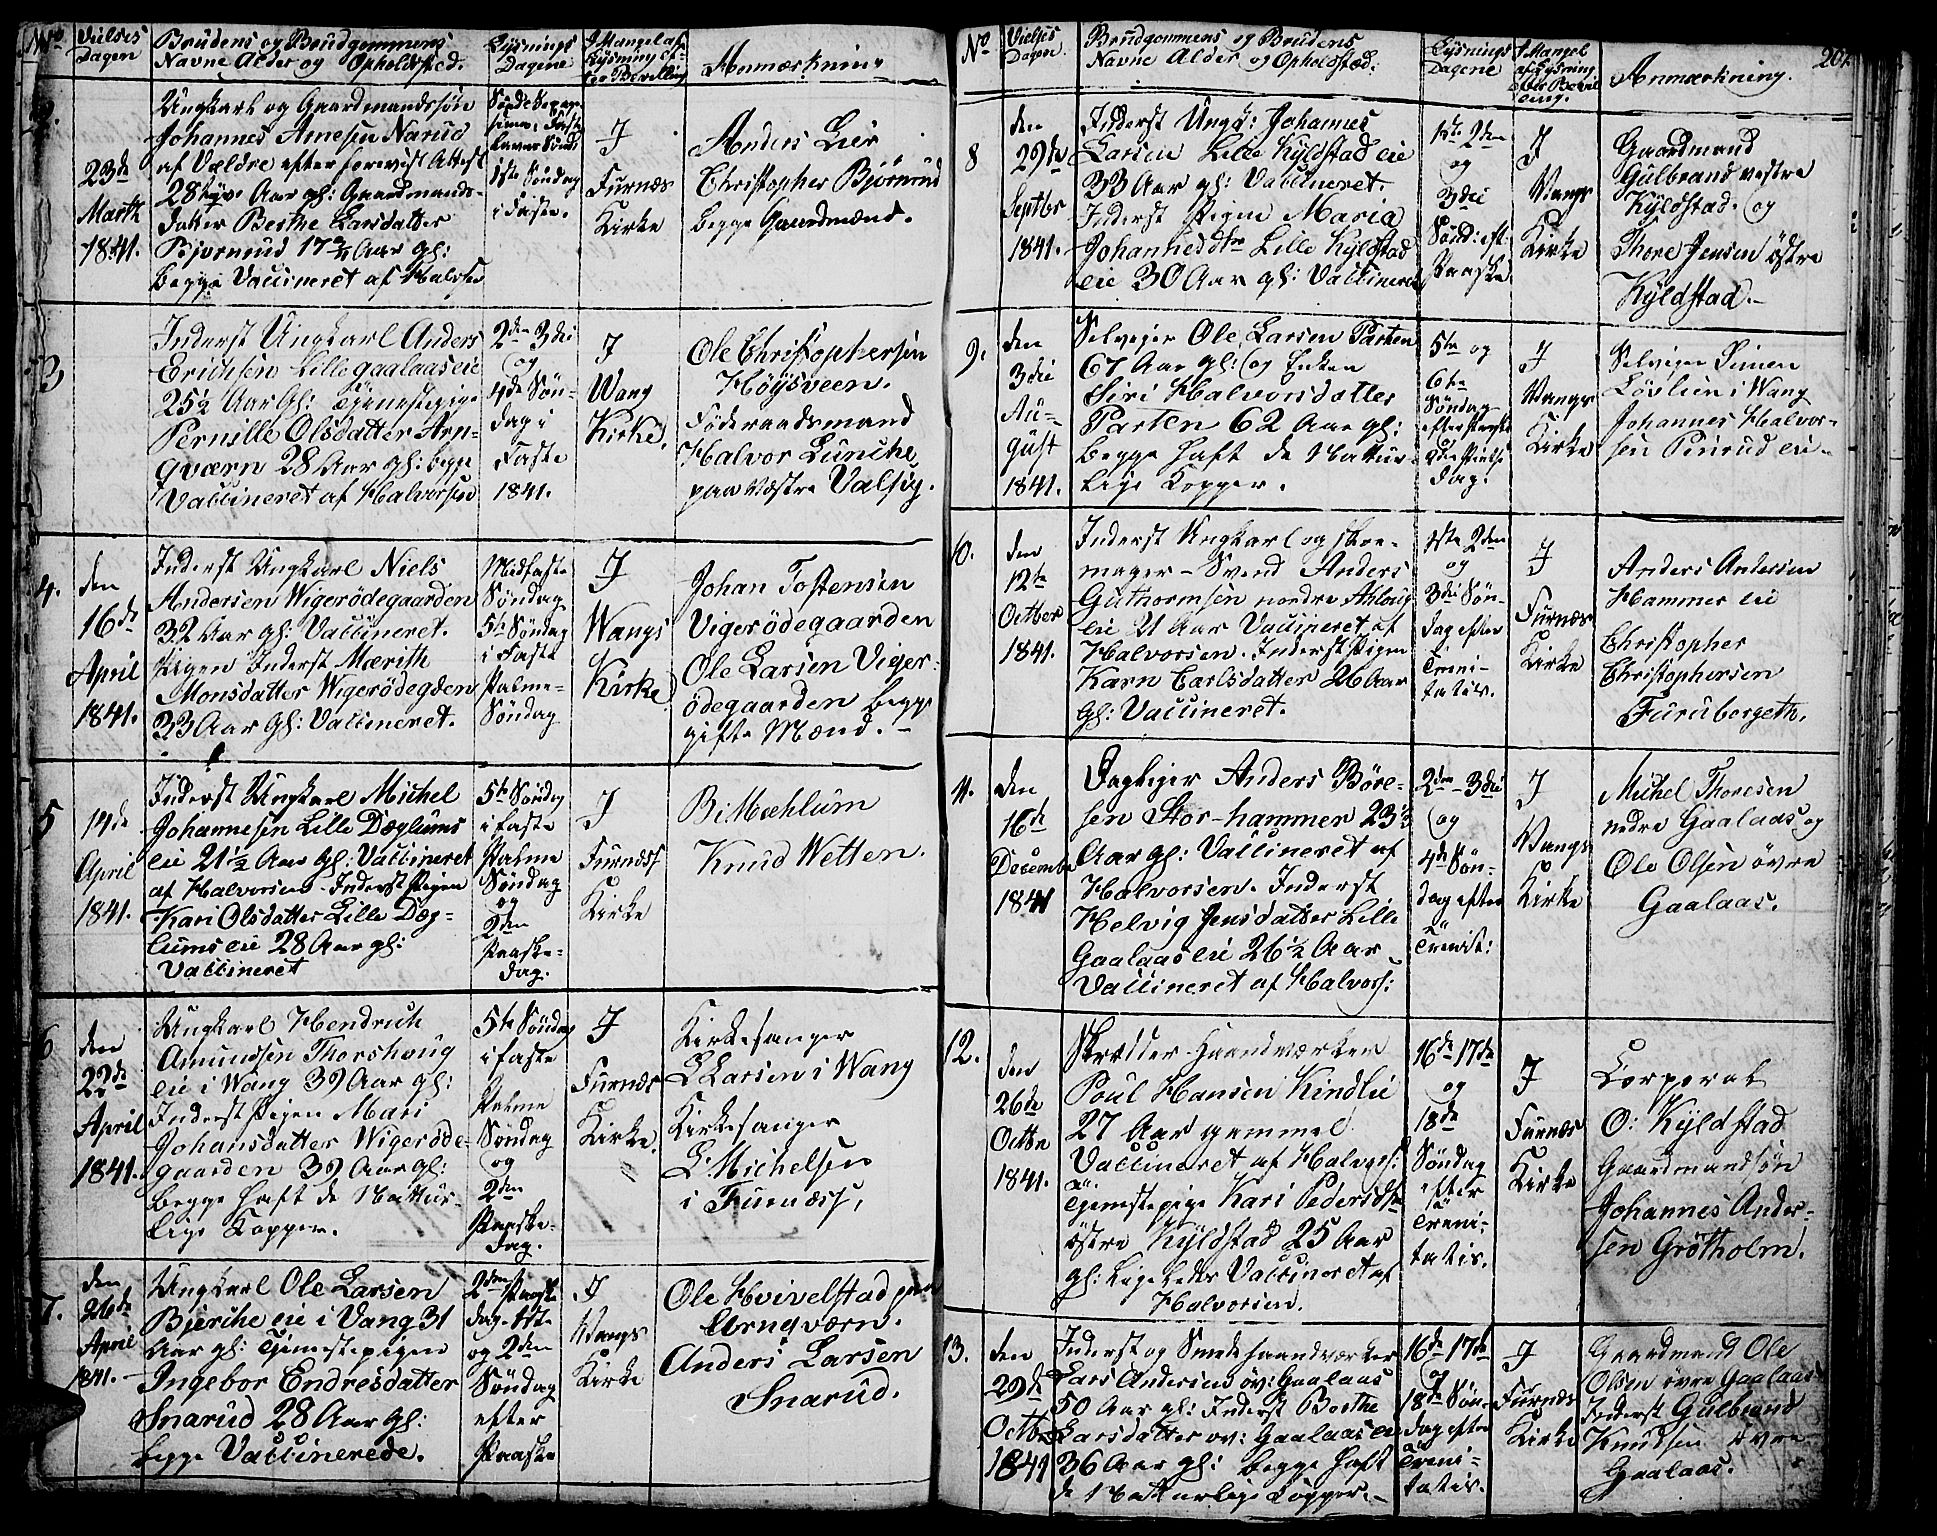 No
Vielses Dagen
Brudens og Brudgommens
Navne Alder og Opholdsted.
Lysnings
Dagene
I Mangel af
Lysning ef-
ter Bevilling
Anmærkning
2.
23de
Marth
1841.
Ungkarl og Gaardmandssøn
Johannes Arnesen Narud
af Vældre efter forevist Attest
28 tyve Aar gl: Gaardmands-
datter Berthe Larsdatter
Bjørnerud 17 3/4 Aar gl:
begge Vaccineret af Halvorsen
1ste Søndag
i Faste.
I
Furnæs
Kirke
Anders Lier
Christopher Bjørnerud
begge Gaardmænd.
3
Inderst Ungkarl Anders
Erichsen Lille gaalaas eie
25½ Aar Gl: Tjenestepige
Pernille Olsdatter Arn-
qværn 28 Aar gl: begge
Vaccineret af Halvorsen
2den 3die
og
4de Søn-
dag i
Faste
1841.
I
Wang
Kirke.
Ole Christophersen
Høysveen.
Føderaadsmand
Halvor Lunche
paa Vestre Valsug.
4.
den
16de
April
1841.
Inderst Ungkarl Niels
Andersen Wigerødegaarden
32 Aar gl: Vaccineret.
Pigen Inderst Marith
Monsdatter Wigerødegden
33 Aar gl: Vaccineret.
Midfaste
Søndag
5te Søndag
i Faste
Palme-
Søndag
I
Wangs
Kirke
Johan Tostensen
Vigerødegaarden
Ole Larsen Viger-
ødegaarden begge
gifte Mænd.
5
14de
April
1841.
Inderst Ungkarl Michel
Johannesen Lille Dæglums
eie 21½ Aar gl: Vaccineret
af Halvorsen. Inderst Pigen
Kari Olsdatter Lille Dæg-
lums eie 28 Aar gl:
Vaccineret
5te Søndag
i Faste
Palme
Søndag
og
2den
Paaske-
dag.
I
Furnæss
Kirke
B: Mæhlum
Knud Wetten.
6
den
22de
April
1841.
Ungkarl Hendrich
Amundsen Thorshoug
eie i Wang 39 Aar gl:
Inderst Pigen Mari
Johansdatter Wigerøde-
gaarden 39 Aar gl:
begge haft de Nattur-
lige Kopper.
5te Søndag
i Faste
Palme
Søndag
og
2den
Paaske-
dag.
I
Furnæs
Kirke.
Kirkesanger
L Larsen i Wang
Kirkesanger
L Michelsen
i Furnæss,
7.
den
26de
April
1841.
Ungkarl Ole Larsen
Bjerche eie i Vang 31
Aar gl: Tjenestepigen
Ingebor Endresdatter
Snarud 28 Aar gl:
begge Vaccinerede.
2den Paaske
dag. 1ste
og 2den
Søndag
efter
Paaske
I
Wangs
Kirke
Ole Hvivelstad paa
Arnqværn.
Anders Larsen
Snarud.
No
Vielses
Dagen.
Brudgommens og Brudens
Navne Alder og Opholdsted.
Lysnings
Dagene
I Mangel
af Lysning
efter Bevil
ling.
Anmærkning.
207
8
den
29de
Septbr
1841.
Inderst Ungk: Johannes
Larsen Lille Kyldstad eie
33 Aar gl: Vaccineret.
Inderst Pigen Maria
Johannesdtr Lille Kyldstad
eie 30 Aar gl: Vaccineret
1ste 2den
og
3die
Sønd: eft
Paaske
I
Wangs
Kirke
Gaardmand
Gulbrand vestre
Kyldstad. og
Thore Jensen østre
Kyldstad.
9.
den
3die
Au-
gust
1841.
Selveier Ole Larsen Parten
67 Aar gl: og Enken
Siri Halvorsdatter
Parten 62 Aar gl:
begge haft de Nattur-
lige Kopper.
5te og
6te
Søndag
efter Paaske
dag.
I
Wangs
Kirke
Selveier Simen
Løvlien i Wang
Johannes Halvor-
sen Pinrud eie
10.
den
12te
Octber
1841.
Inderst Ungkarl og Skoe-
mager-Svend Anders
Guthormsen nordre Ahloug
eie 21 Aar Vaccineret af
Halvorsen. Inderst Pigen
Karn Carlsdatter 26 Aar
Gl: Vaccineret.
1ste 2den
og
3die Søn-
dag efter
Treni-
tatis.
I
Furnæs
Kirke
Anders Andersen
Hammer eie
Christopher
Christophersen
Furuborgeth.
11.
den
16de
December
1841
Dagleier Anders Børe-
sen Stor-hammer 23½
Aar gl: Vaccineret af
Halvorsen. Inderst
Helvig Jensdatter Lille
Gaalaas eie 26½ Aar
Vaccineret af Halvors:
2den 3die
og
4de Søn-
dag efter
Trenit:
I
Wangs
Kirke
Michel Thoresen
nedre Gaalaas og
Ole Olsen øvre
Gaalaas.
12.
den
26de
Octbr
1841.
Skrædder Haandværker
Poul Hansen Kindlie
27 Aar gammel
Vaccineret af Halvors:
Tjenestepige Kari Pedersdtr
østre Kyldstad 25 Aar
gl: Ligeledes Vaccineret af
Halvorsen.
16de 17de
og
18de
Søndag
efter
Treni-
tatis.
I
Furnæs
Kirke
Corporal
O: Kyldstad
Gaardmandsøn
Johannes Ander-
sen Grøtholm.
13.
den
29de
Octbr
1841
Inderst og Smedehaandværker
Lars Andersen øv: Gaalaas
50 Aar gl: Inderst Berthe
Larsdatter øv: Gaalaas eie
36 Aar gl: begge haft
de Natturlige Kopper.
16de 17de
18de Søn-
dag efter
Treni-
tatis.
I
Furnæs
Kirke
Gaardmand Ole
Olsen øvre Gaalaas
Inderst Gulbrand
Knudsen øvre
Gaalaas.